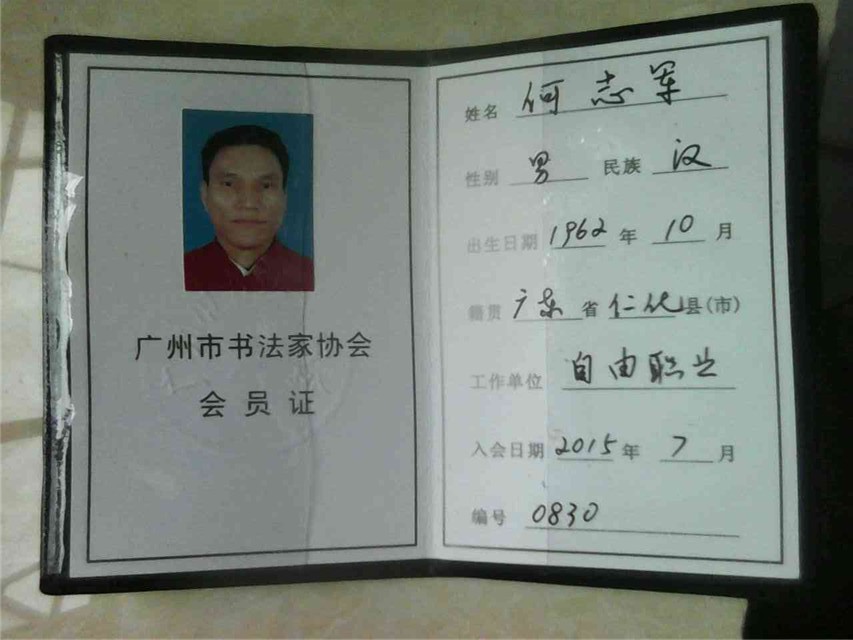 广州市书法家协会
会员证
姓名 何志军
性别 男 民族 汉
出生日期 1962 年 10 月
籍贯 广东 省 仁化 县(市)
工作单位 自由职业
入会日期 2015 年 7 月
编号 0830